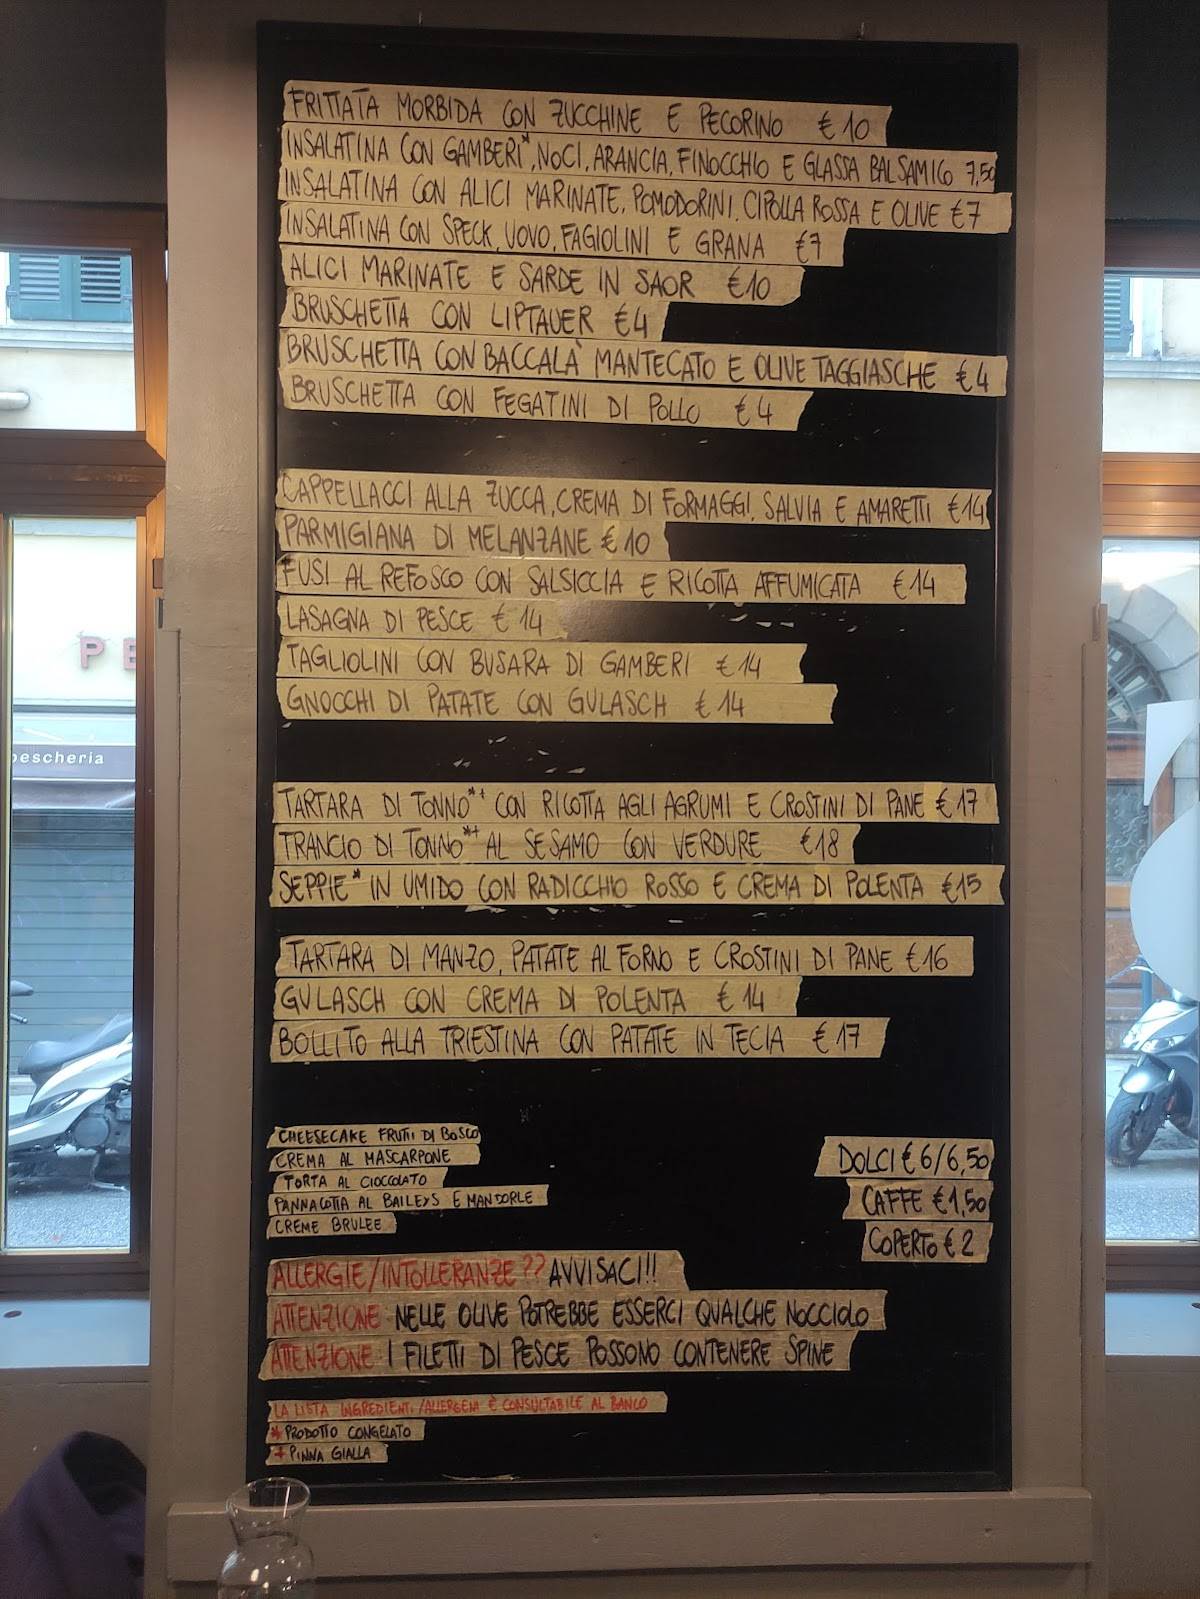 FRITTATA MORBIDA CON ZUCCHINE E PECORINO €10
INSALATINA CON GAMBERI*, NOCI, ARANCIA, FINOCCHIO E GLASSA BALSAMICO 7,50
INSALATINA CON ALICI MARINATE, POMODORINI, CIPOLLA ROSSA E OLIVE €7
INSALATINA CON SPECK, UOVO, FAGIOLINI E GRANA €7
ALICI MARINATE E SARDE IN SAOR €10
BRUSCHETTA CON LIPTAUER €4
BRUSCHETTA CON BACCALÀ MANTECATO E OLIVE TAGGIASCHE €4
BRUSCHETTA CON FEGATINI DI POLLO €4
CAPPELLACCI ALLA ZUCCA, CREMA DI FORMAGGI, SALVIA E AMARETTI €14
PARMIGIANA DI MELANZANE €10
FUSI AL REFOSCO CON SALSICCIA E RICOTTA AFFUMICATA €14
LASAGNA DI PESCE €14
TAGLIOLINI CON BUSARA DI GAMBERI €14
GNOCCHI DI PATATE CON GULASCH €14
TARTARA DI TONNO*+ CON RICOTTA AGLI AGRUMI E CROSTINI DI PANE €17
TRANCIO DI TONNO*+ AL SESAMO CON VERDURE €18
SEPPIE* IN UMIDO CON RADICCHIO ROSSO E CREMA DI POLENTA €15
TARTARA DI MANZO, PATATE AL FORNO E CROSTINI DI PANE €16
GULASCH CON CREMA DI POLENTA €14
BOLLITO ALLA TRIESTINA CON PATATE IN TECIA €17
CHEESECAKE FRUTTI DI BOSCO
CREMA AL MASCARPONE
TORTA AL CIOCCOLATO
PANNACOTTA AL BAILEYS E MANDORLE
CREME BRULEE
DOLCI €6/6,50
CAFFE €1,50
COPERTO €2
ALLERGIE/INTOLLERANZE?? AVVISACI!!
ATTENZIONE: NELLE OLIVE POTREBBE ESSERCI QUALCHE NOCCIOLO
ATTENZIONE: I FILETTI DI PESCE POSSONO CONTENERE SPINE
LA LISTA INGREDIENTI/ALLERGENI È CONSULTABILE AL BANCO
* PRODOTTO CONGELATO
+ PINNA GIALLA
PE
pescheria